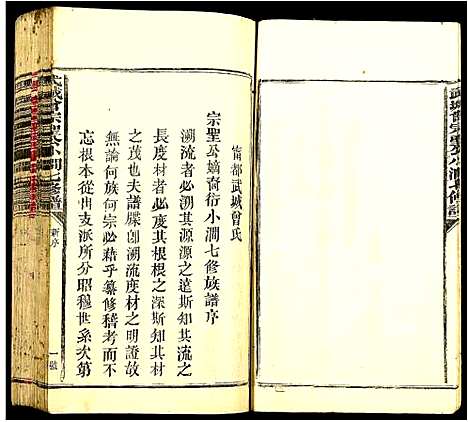 武城曾宗聖公小澗七修譜
甯都武城曾氏
宗聖公嫡裔衍小澗七修族譜序
溯流者必溯其源源之遠斯知其流之
長度材者必度其根根之深斯知其材
之茂也夫譜牒卽溯流度材之明證故
無論何族何宗必藉乎纂修稽考而不
忘根本從由支派所分昭穆世系次第
武城曾宗聖公小澗七修譜
新序
一號